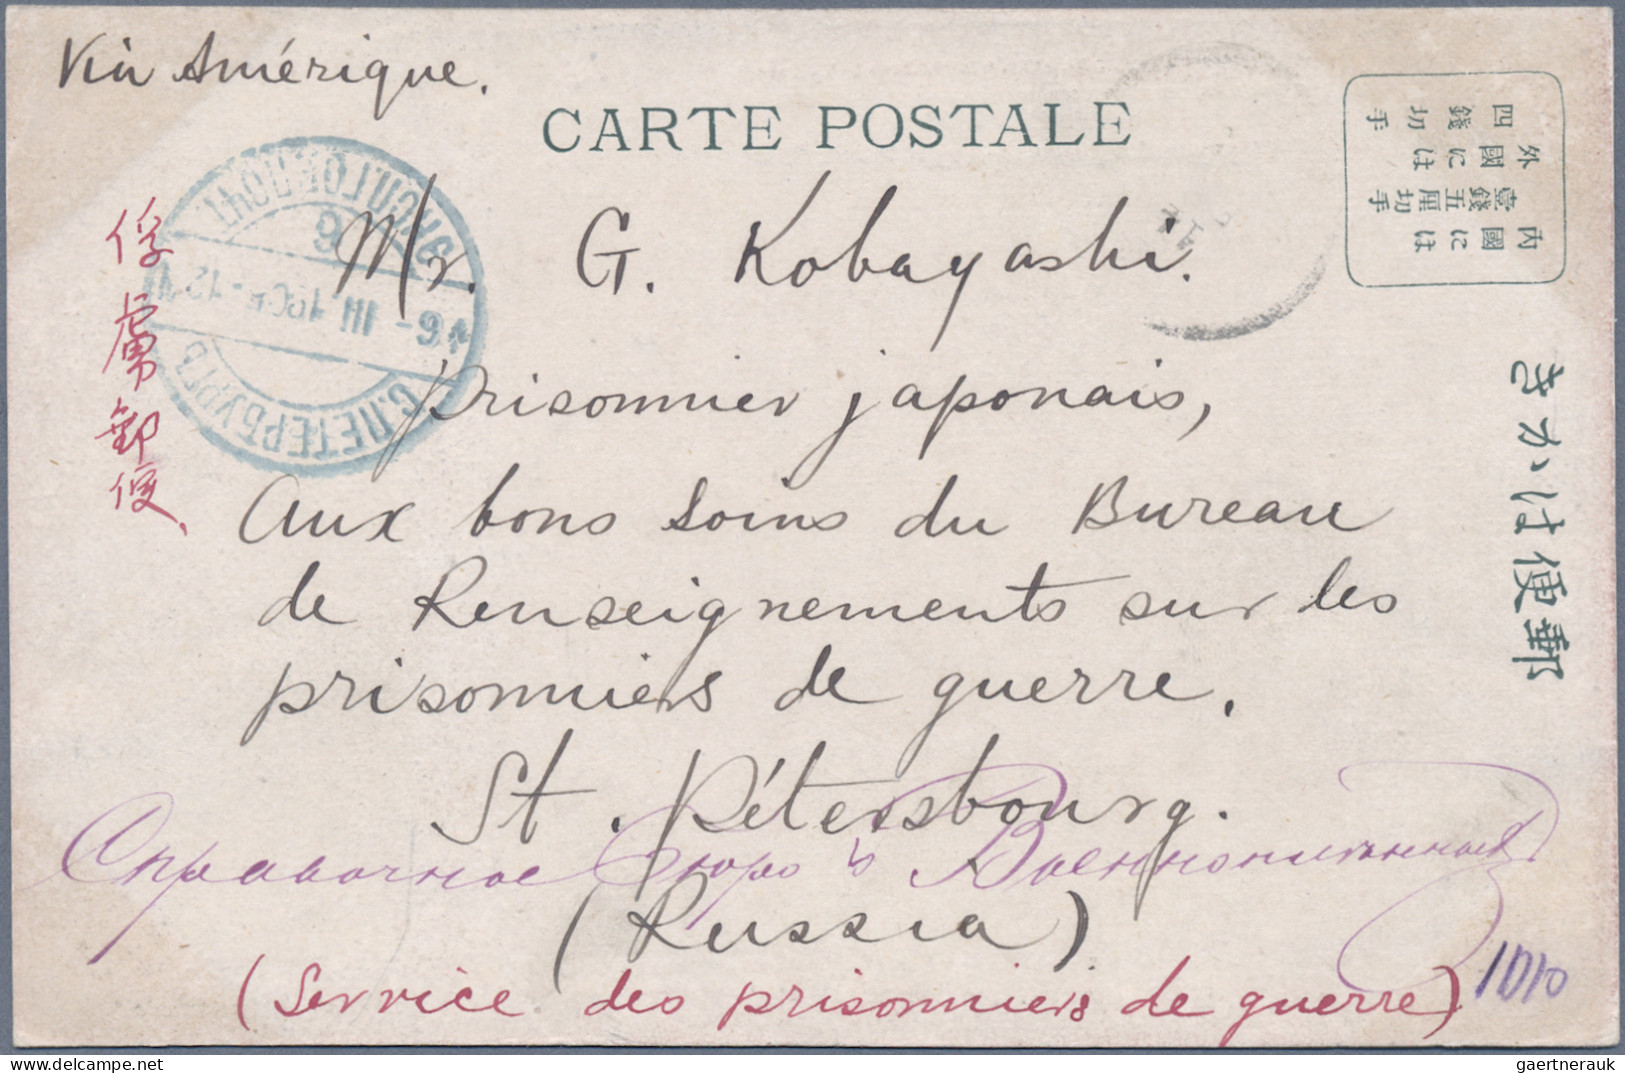 Via Amérique.
CARTE POSTALE
外國には
四錢切手
內國には
壹錢五厘切手
俘虜郵便、
Mr. G. Kobayashi.
Prisonnier japonais,
Aux bons soins du Bureau
de Renseignements sur les
prisonniers de guerre.
St. Pétersbourg.
Справочное Бюро о Военнопленныхъ
(Russia)
(Service des prisonniers de guerre)
1010
郵便はかき
С.ПЕТЕРБУРГЪ
gaertnerauk